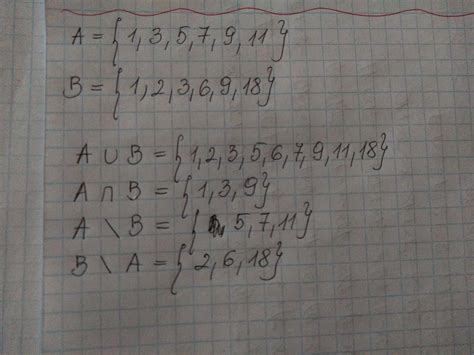 A = {1, 3, 5, 7, 9, 11}
B = {1, 2, 3, 6, 9, 18}
A ∪ B = {1, 2, 3, 5, 6, 7, 9, 11, 18}
A ∩ B = {1, 3, 9}
A \ B = {5, 7, 11}
B \ A = {2, 6, 18}